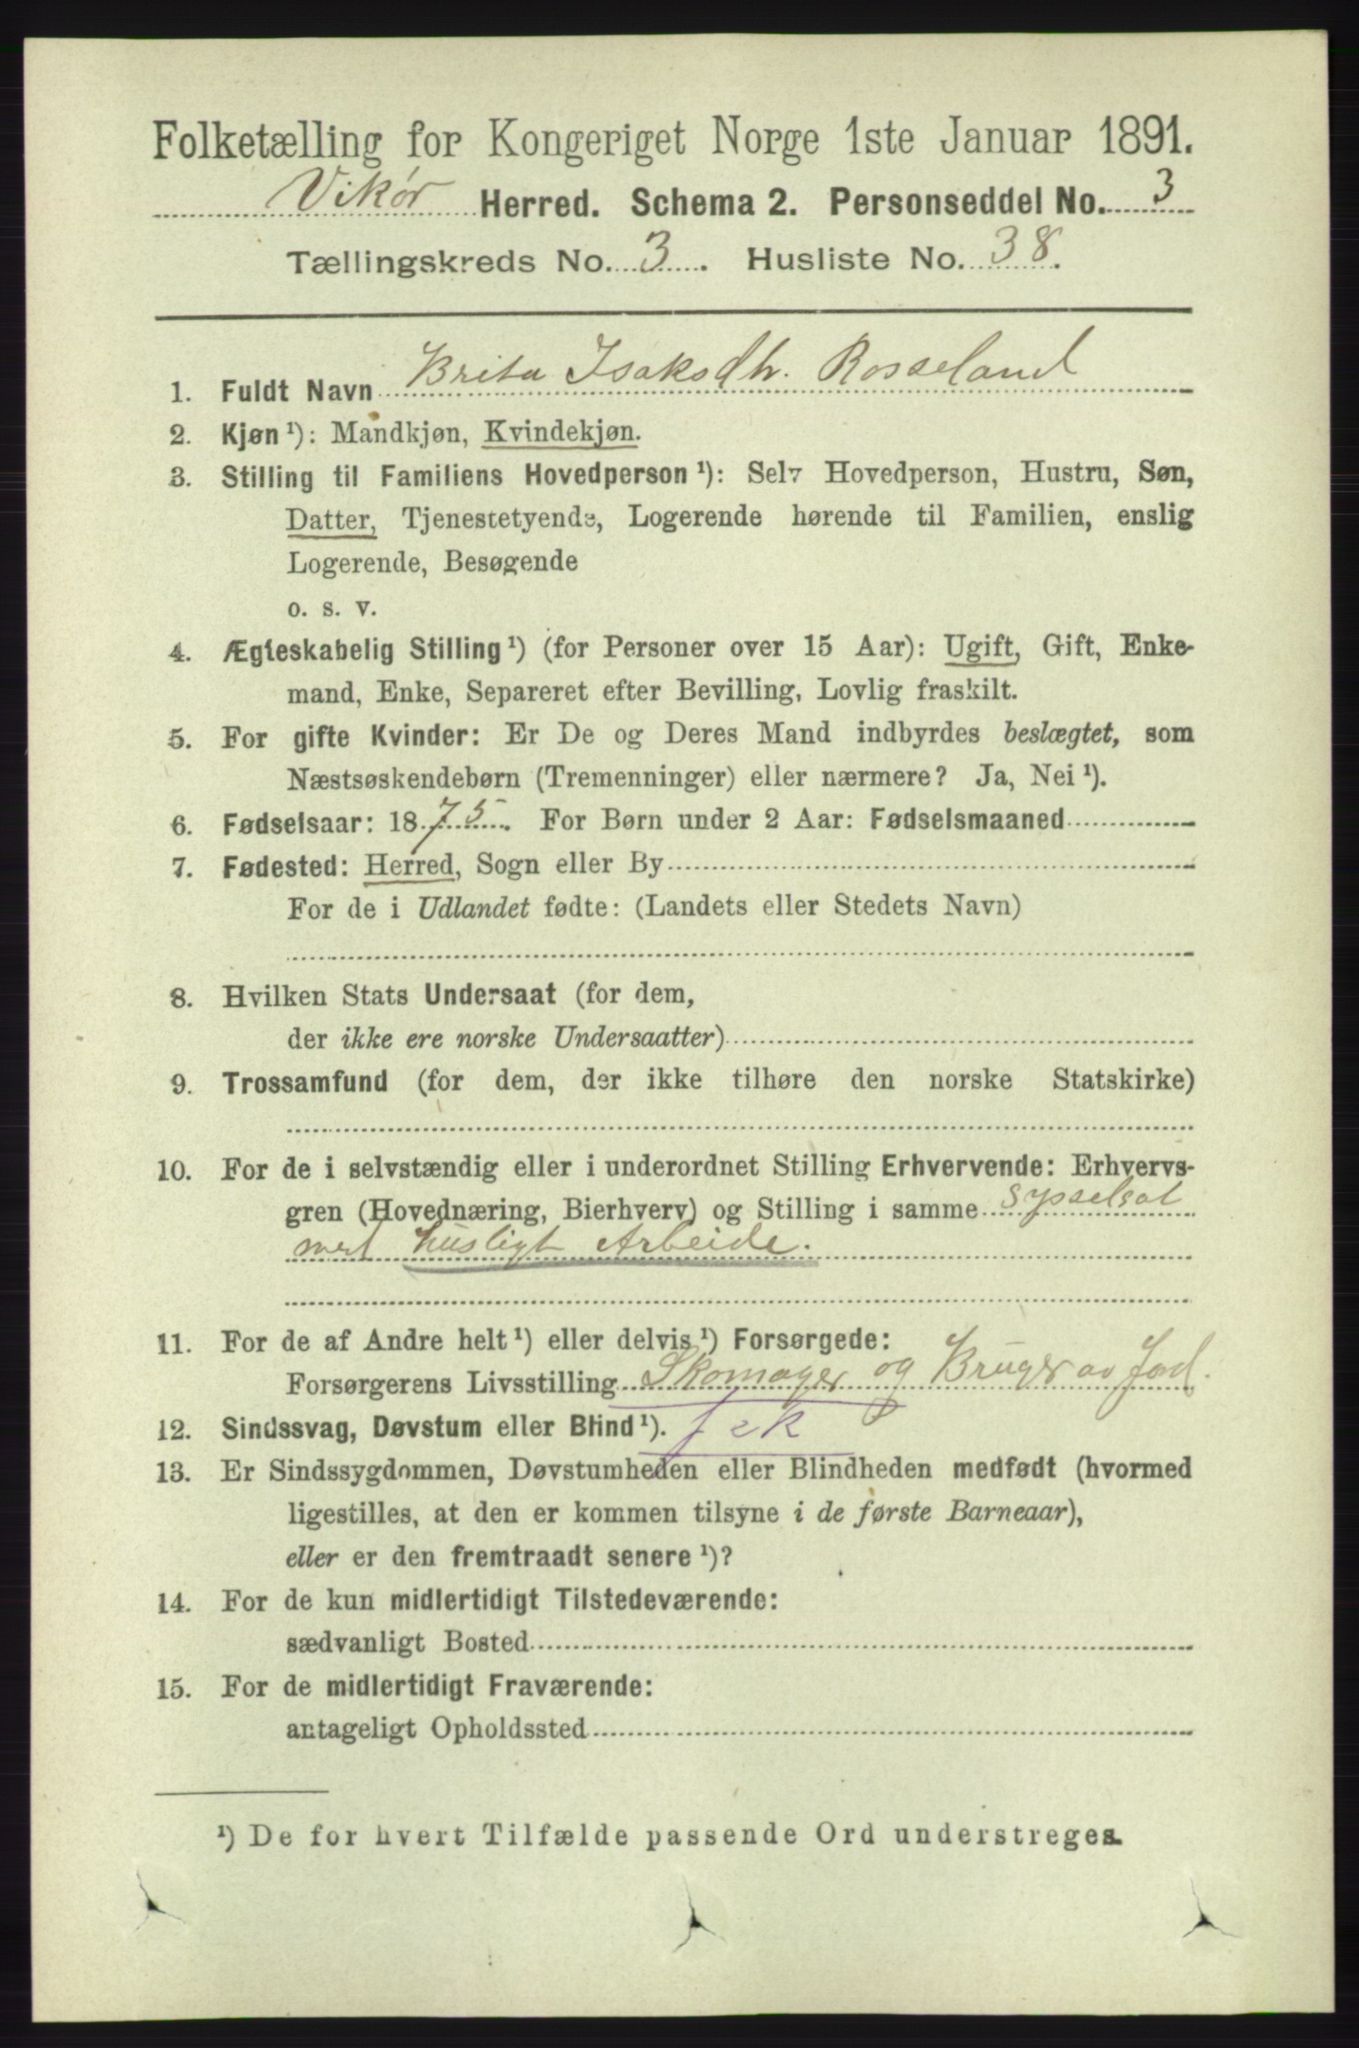 Folketælling for Kongeriget Norge 1ste Januar 1891.
Vikør Herred. Schema 2. Personseddel No. 3
Tællingskreds No. 3. Husliste No. 38.
1. Fuldt Navn Brita Isaksdtr. Rosseland
2. Kjøn ¹): Mandkjøn, Kvindekjøn.
3. Stilling til Familiens Hovedperson ¹): Selv Hovedperson, Hustru, Søn,
Datter, Tjenestetyende, Logerende hørende til Familien, enslig
Logerende, Besøgende
o. s. v.
4. Ægteskabelig Stilling ¹) (for Personer over 15 Aar): Ugift, Gift, Enke-
mand, Enke, Separeret efter Bevilling, Lovlig fraskilt.
5. For gifte Kvinder: Er De og Deres Mand indbyrdes beslægtet, som
Næstsøskendebørn (Tremenninger) eller nærmere? Ja, Nei ¹).
6. Fødselsaar: 1875. For Børn under 2 Aar: Fødselsmaaned
7. Fødested: Herred, Sogn eller By
For de i Udlandet fødte: (Landets eller Stedets Navn)
8. Hvilken Stats Undersaat (for dem,
der ikke ere norske Undersaatter)
9. Trossamfund (for dem, der ikke tilhøre den norske Statskirke)
10. For de i selvstændig eller i underordnet Stilling Erhvervende: Erhvervs-
gren (Hovednæring, Bierhverv) og Stilling i samme sysselsat
med husligt Arbeide.
11. For de af Andre helt ¹) eller delvis ¹) Forsørgede:
Forsørgerens Livsstilling Skomager og Bruger av Jord.
12. Sindssvag, Døvstum eller Blind ¹).
13. Er Sindssygdommen, Døvstumheden eller Blindheden medfødt (hvormed
ligestilles, at den er kommen tilsyne i de første Barneaar),
eller er den fremtraadt senere ¹)?
14. For de kun midlertidigt Tilstedeværende:
sædvanligt Bosted
15. For de midlertidigt Fraværende:
antageligt Opholdssted
¹) De for hvert Tilfælde passende Ord understreges.